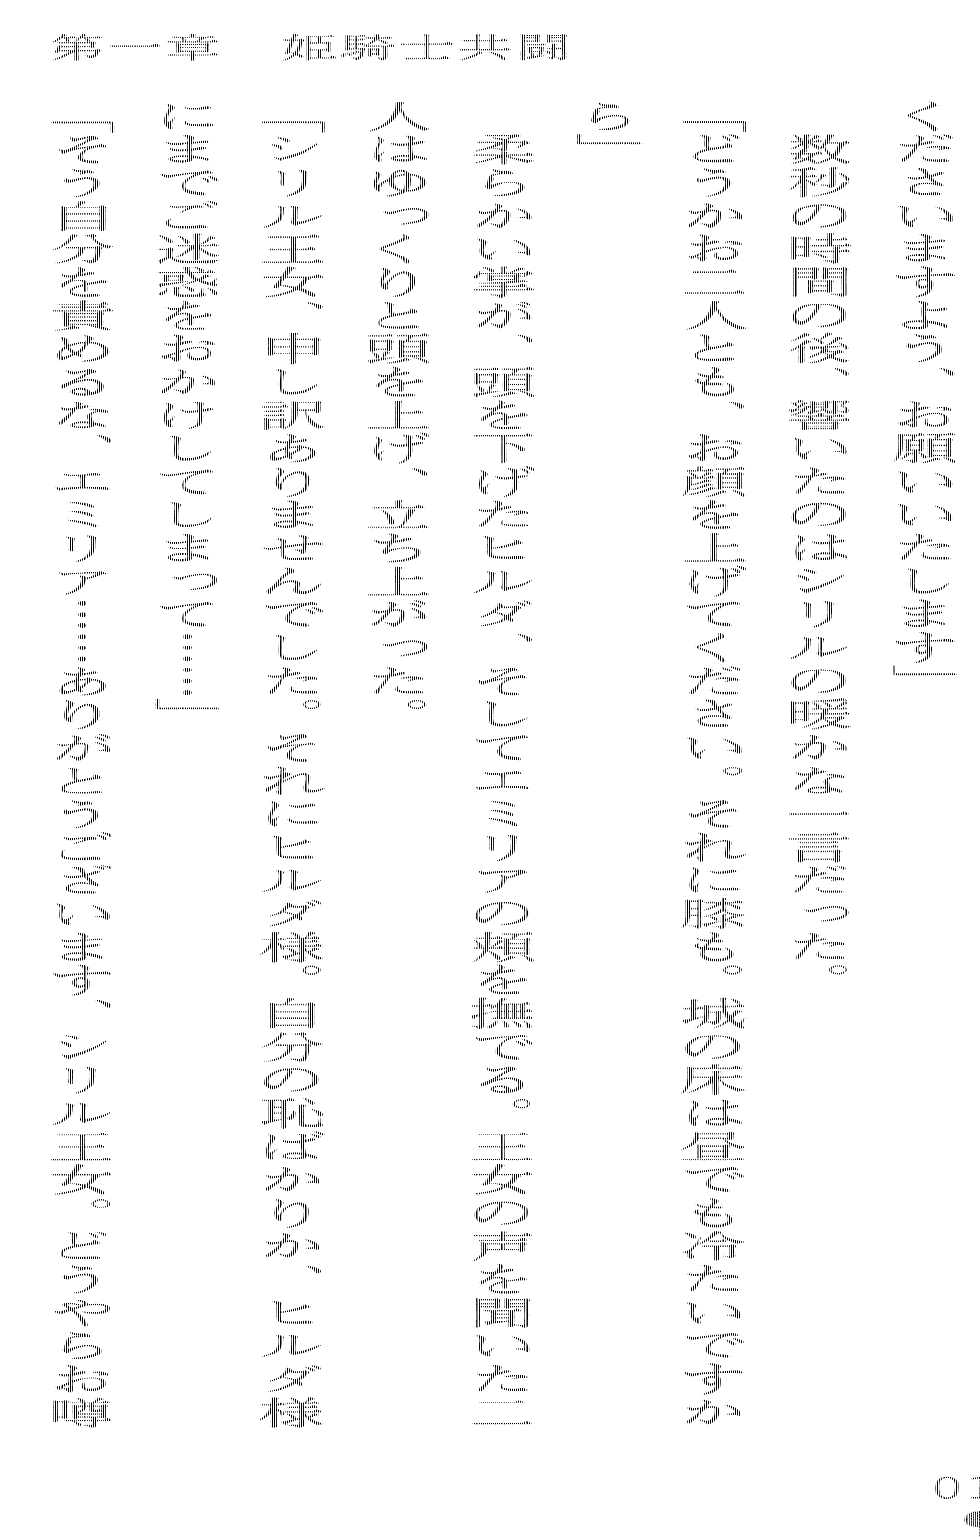 第一章　姫騎士共闘
くださいますよう、お願いいたします」
数秒の時間の後、響いたのはシリルの暖かな一言だった。
「どうかお二人とも、お顔を上げてください。それに膝も。城の床は昼でも冷たいですか
ら」
柔らかい掌が、頭を下げたヒルダ、そしてエミリアの頬を撫でる。王女の声を聞いた二
人はゆっくりと頭を上げ、立ち上がった。
「シリル王女、申し訳ありませんでした。それにヒルダ様。自分の恥ばかりか、ヒルダ様
にまでご迷惑をおかけしてしまって……」
「そう自分を責めるな、エミリア……ありがとうございます、シリル王女。どうやらお噂
01